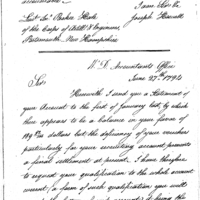 I am Sir &c.
Joseph Howell
Lieut. Jno. Parker Hale
of the Corps of Artill. & Engineers
Portsmouth, New Hampshire
W. D. Accountants Office
June 27th 1794
Sir
Herewith I send you a Statement of
your Account to the first of January last, by which
there appears to be a balance in your favor of
dollars but the deficiency of your vouchers
particularly for your recruiting account prevents
a final settlement at present. I have therefore
to request your qualification to the whole account
current, (a form of such qualification you will